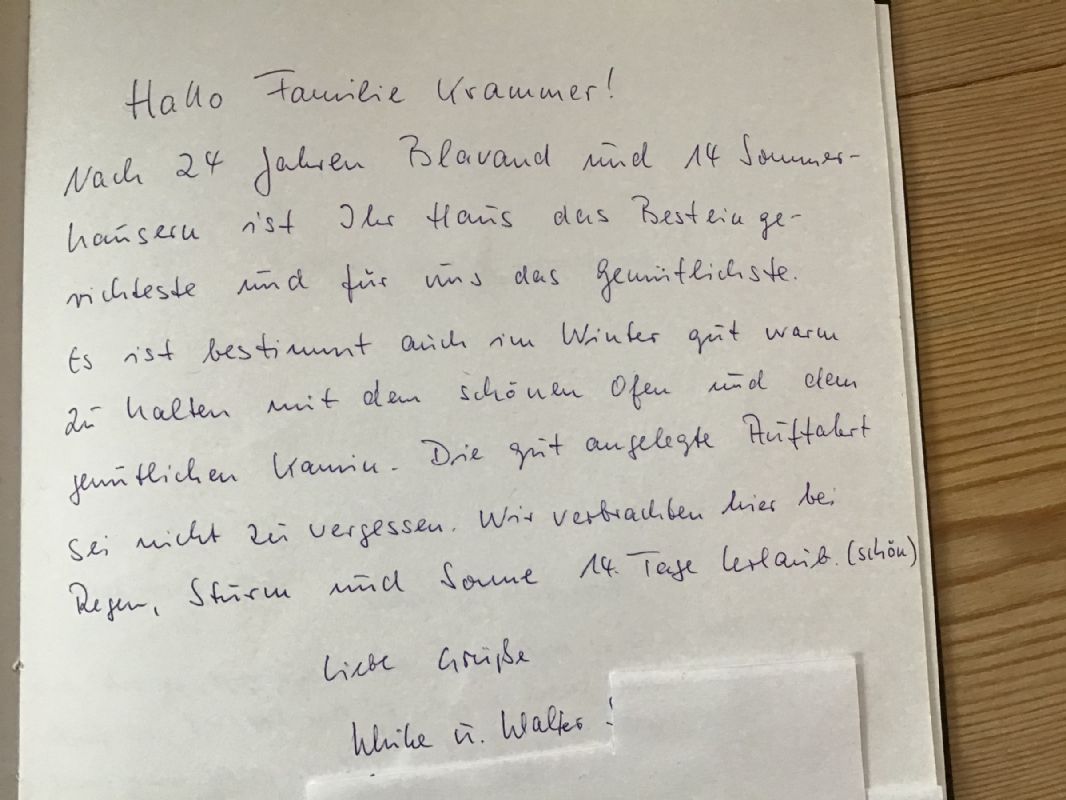 Hallo Familie Krammer!
Nach 24 Jahren Blavand und 14 Sommer-
häusern ist Ihr Haus das Besteinge-
richteste und für uns das Gemütlichste.
Es ist bestimmt auch im Winter gut warm
zu halten mit dem schönen Ofen und dem
gemütlichen Kamin. Die gut angelegte Auffahrt
sei nicht zu vergessen. Wir verbrachten hier bei
Regen, Sturm und Sonne 14. Tage Urlaub. (schön)
Liebe Grüße
Ulrike u. Walter